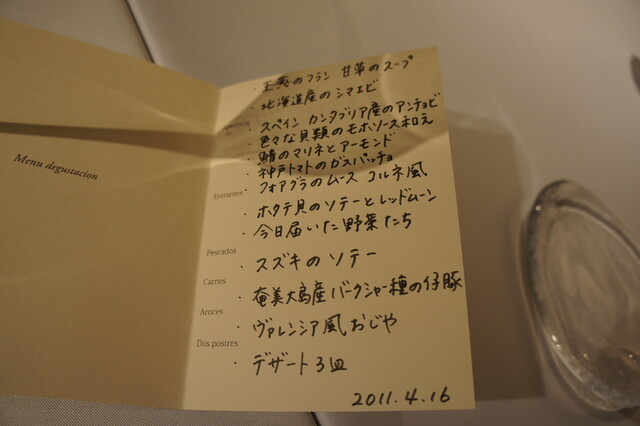 Menu degustacion
・玉葱のフラン 甘草のスープ
・北海道産のシマエビ
・スペイン カンタブリア産のアンチョビ
・色々な貝類のモホソース和え
・鯖のマリネとアーモンド
・神戸トマトのガスパッチョ
Entrantes
・フォアグラのムース コルネ風
・ホタテ貝のソテーとレッドムーン
・今日届いた野菜たち
Pescados
・スズキのソテー
Carnes
・奄美大島産バークシャー種の仔豚
Arroces
・ヴァレンシア風おじや
Dos postres
・デザート3皿
2011.4.16